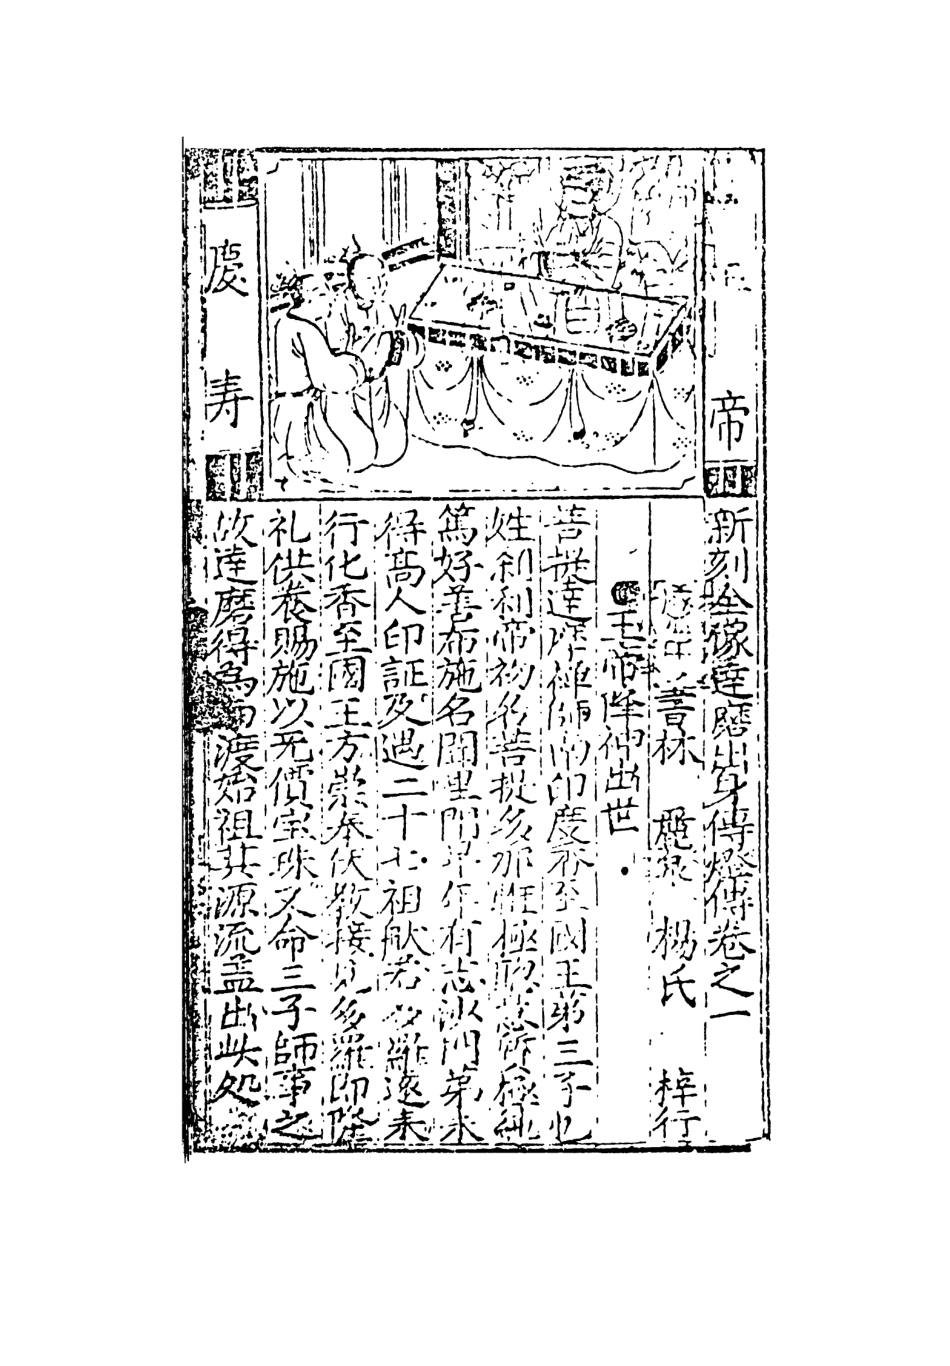 帝
慶寿
新刻全像達磨出身傳燈傳卷之一
書林 麗泉 楊氏 梓行
玉帝降佛出世
菩提達摩禪師南印度香至國王第三子也
姓剎利帝初名菩提多那性極聰
篤好善布施名聞里門早年有志沙門第未
得高人印証及遇二十七祖般若多羅逐來
行化香至國王方崇奉伏教接見多羅即隆
礼供養賜施以无價宝珠又命三子師事之
故達磨得為西渡始祖其源流盖出此処